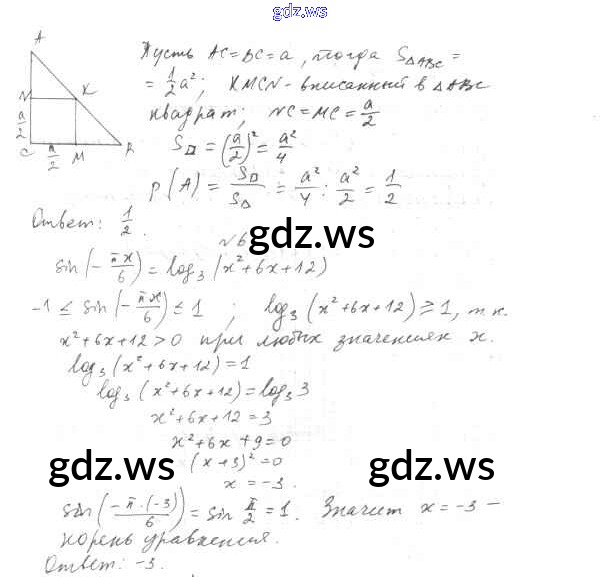 gdz.ws
A
N
K
a/2
C
a/2
M
B
Пусть AC=BC=a, тогда S△ABC =
= 1/2 a²; KMCN - вписанный в △ABC
квадрат; NC=MC= a/2
S□ = (a/2)² = a²/4
P(A) = S□/S△ = a²/4 : a²/2 = 1/2
Ответ: 1/2.
gdz.ws
№6
sin(-πx/6) = log₃(x²+6x+12)
-1 ≤ sin(-πx/6) ≤ 1 ; log₃(x²+6x+12) ≥ 1, т.к.
x²+6x+12>0 при любых значениях x.
log₃(x²+6x+12)=1
log₃(x²+6x+12)=log₃3
x²+6x+12=3
x²+6x+9=0
gdz.ws
(x+3)²=0
gdz.ws
x=-3.
sin(-π·(-3)/6) = sin π/2 = 1. Значит x=-3 -
корень уравнения.
Ответ: -3.